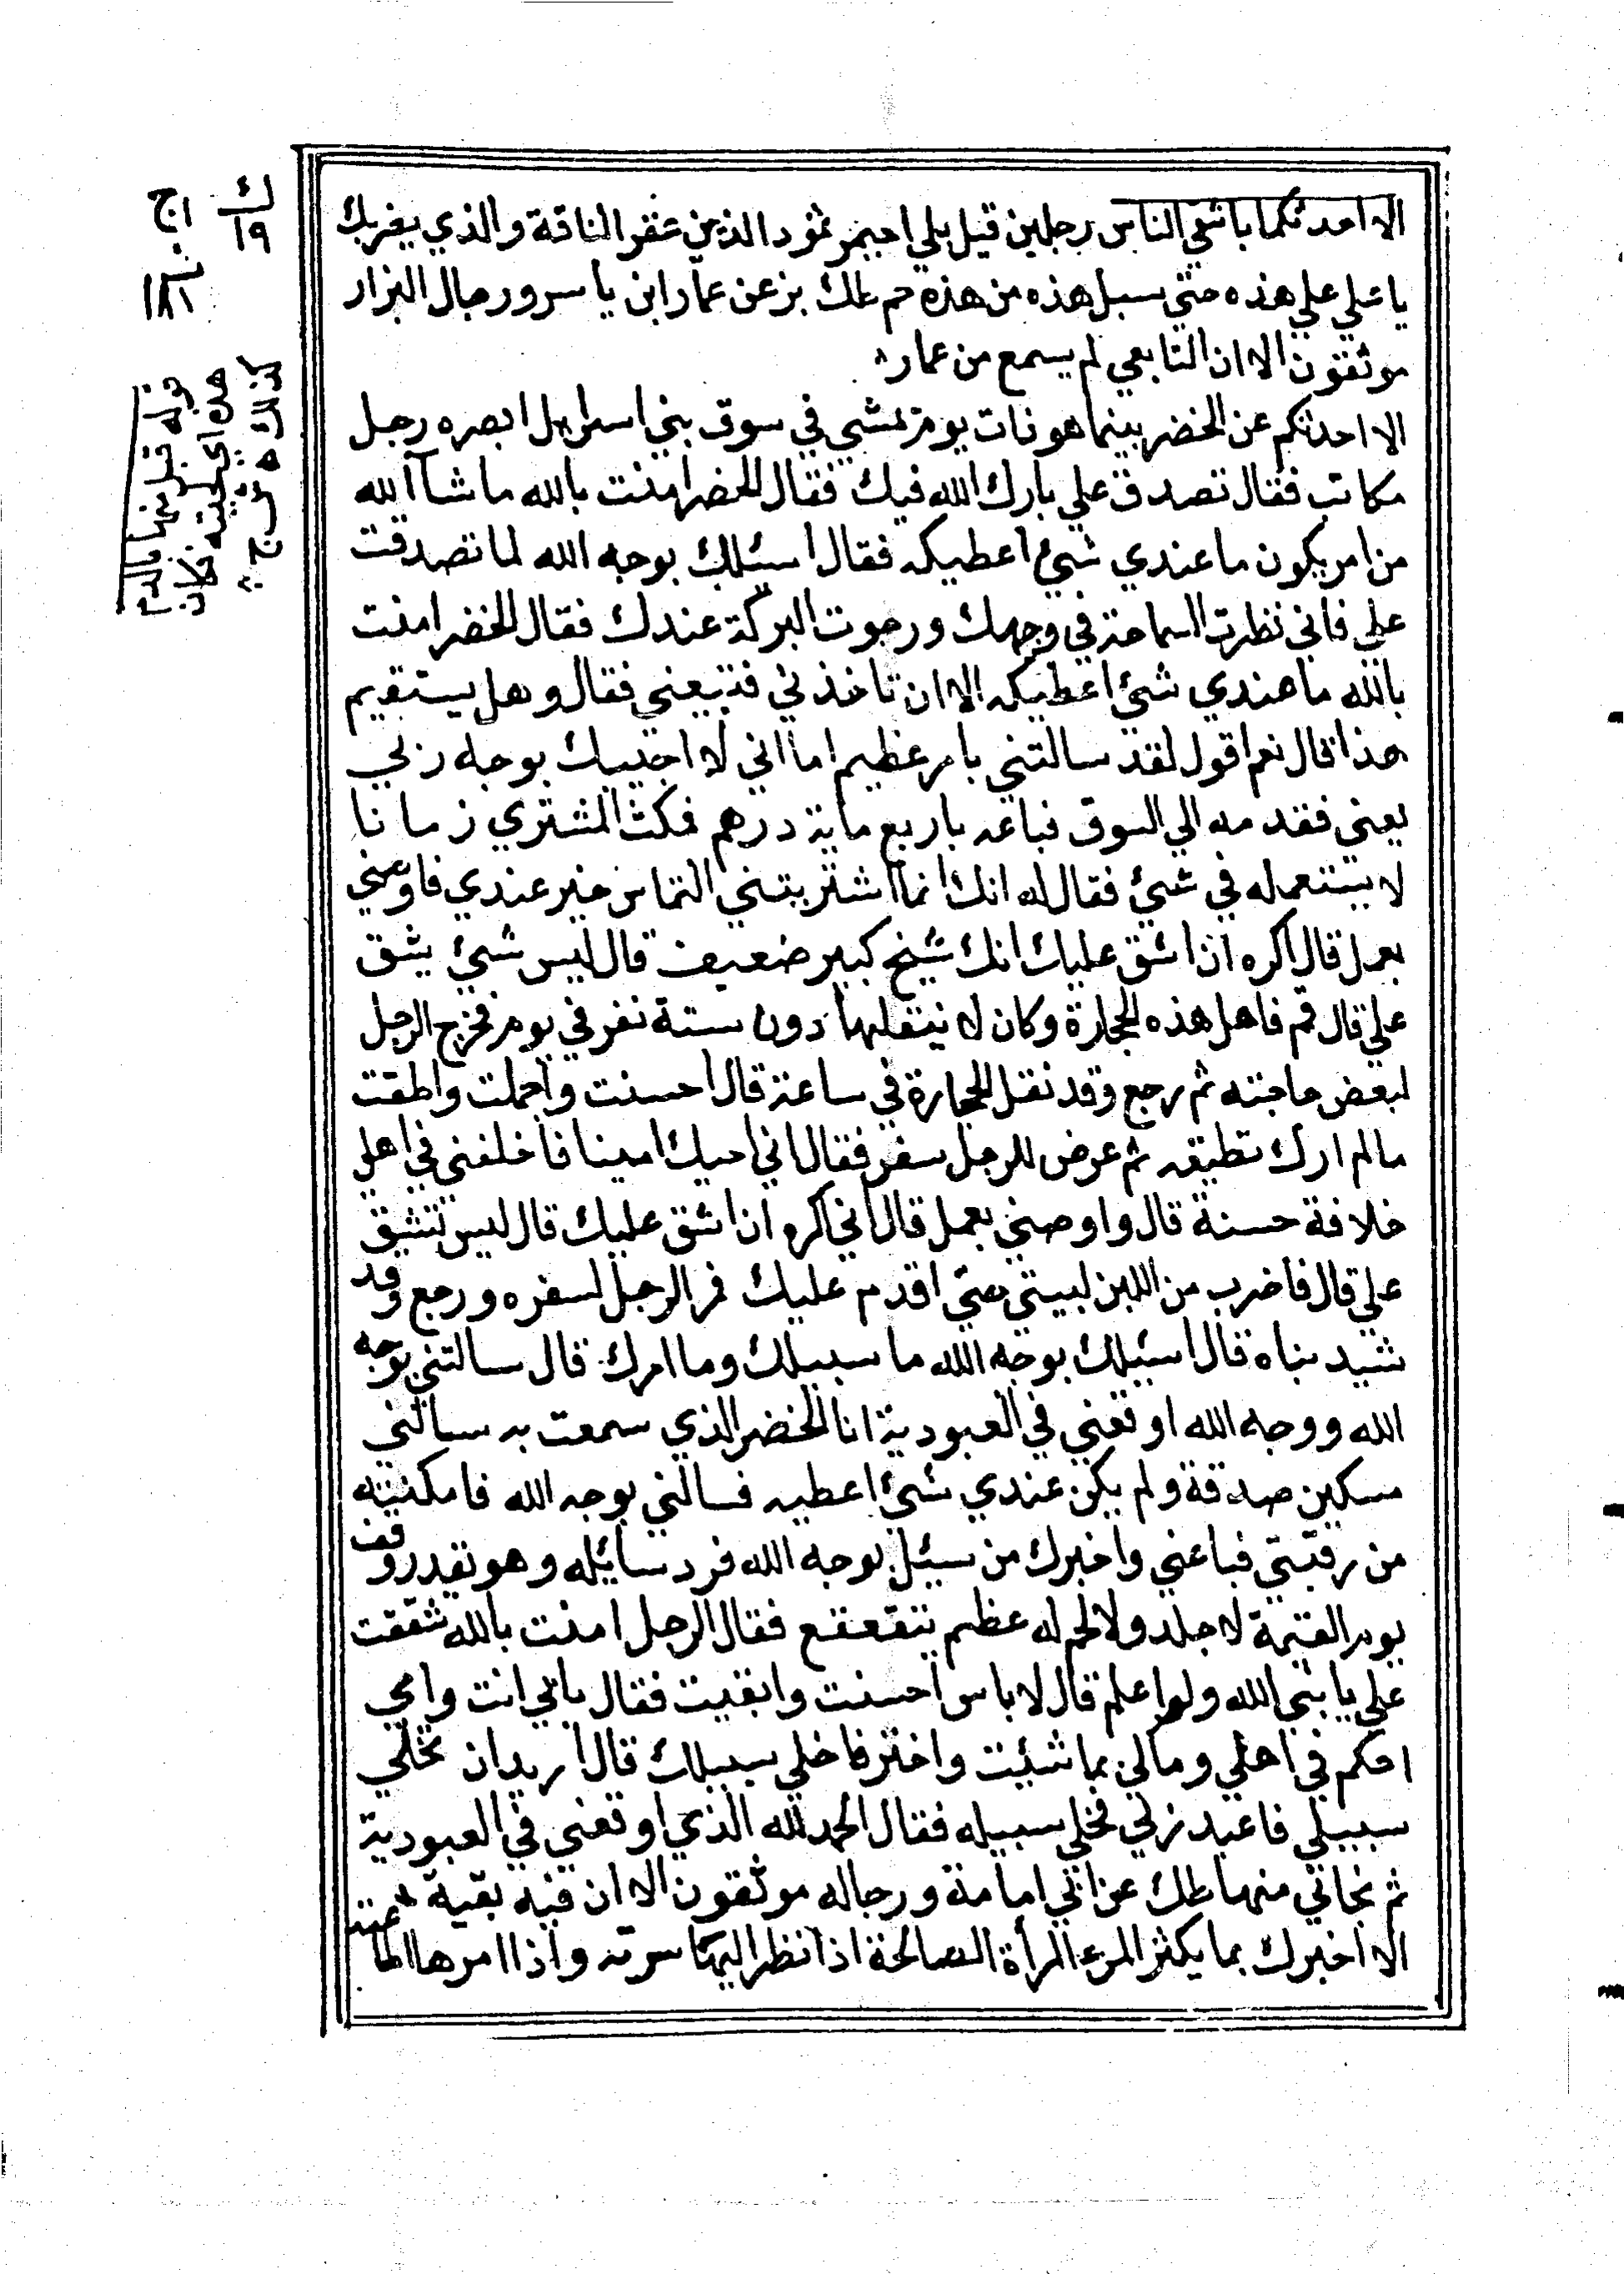 الا احدثكما باشقي الناس رجلين قيل بلي احيمر ثمود الذين عقر الناقة والذي يضربك
يا علي علي هذه حتي يبل هذه من هذه حم طك بز عن عمار ابن ياسر ورجال البزار
موثقون الا ان التابعي لم يسمع من عمار
الا احدثكم عن الخضر بينما هو ذات يوم يمشي في سوق بني اسراييل ابصره رجل
مكاتب فقال تصدق علي بارك الله فيك فقال الخضر امنت بالله ما شاآ الله
من امر يكون ما عندي شيئ اعطيكه فقال اسئلك بوجه الله لما تصدقت
علي فاني نظرت السماحة في وجهك ورجوت البركة عندك فقال الخضر امنت
بالله ما عندي شيئ اعطيكه الا ان تاخذني فتبيعني فقال وهل يستقيم
هذا قال نعم اقول لقد سالتني بامر عظيم اما اني لا اخيبك بوجه ربي
بعني فقدمه الي السوق فباعه باربع ماية درهم فمكث المشتري زمانا
لا يستعمله في شيئ فقال له انك انما اشتريتني التماس خير عندي فاوصني
بعمل قال اكره ان اشق عليك انك شيخ كبير ضعيف قال ليس شيئ يشق
علي قال قم فاهل هذه الحجارة وكان لا ينقلها دون ستة نفر في يوم فخرج الرجل
لبعض حاجته ثم رجع وقد نقل الحجارة في ساعة قال احسنت واجملت واطقت
مالم ارك تطيقه ثم عرض للرجل سفر فقال اني احبك امينا فاخلفني في اهلي
خلافة حسنة قال واوصني بعمل قال اني اكره ان اشق عليك قال ليس تشق
علي قال فاضرب من اللبن لبيتي حتي اقدم عليك فمر الرجل لسفره ورجع وقد
شيد بناه قال اسئلك بوجه الله ما سبيلك وما امرك قال سالتني بوجه
الله ووجه الله اوقعني في العبودية انا الخضر الذي سمعت به سالني
مسكين صدقة ولم يكن عندي شيئ اعطيه فسالني بوجه الله فامكنته
من رقبتي فباعني واخبرك من سئل بوجه الله فرد سائله وهو يقدر وقف
يوم القيمة لا جلد ولا لحم له عظم يتقعقع فقال الرجل امنت بالله شققت
علي يا نبي الله ولم اعلم قال لا باس احسنت وابقيت فقال بابي انت وامي
احكم في اهلي ومالي بما شئت واختر فاخلي سبيلك قال اريد ان تخلي
سبيلي فاعبد ربي فخلي سبيله فقال الحمد لله الذي اوقعني في العبودية
ثم نجاني منها طك عن ابي امامة ورجاله موثقون الا ان فيه بقية
الا اخبرك بما يكنز المرء المرأة الصالحة اذا نظر اليها سرته واذا امرها اطاعته
ك
١٩
اج
١٨١